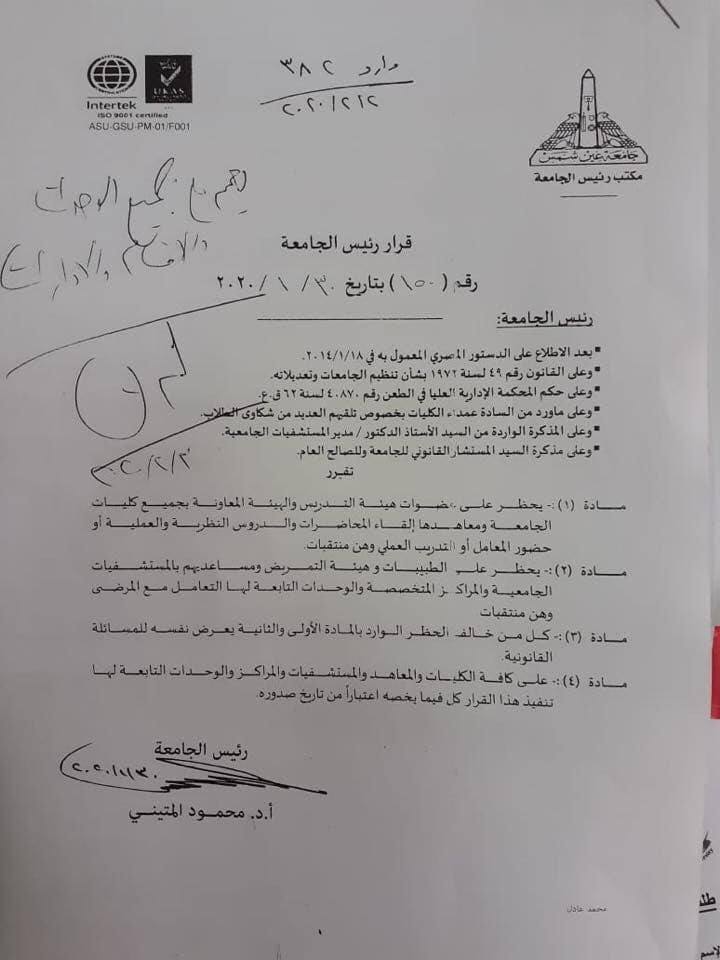 Intertek
ISO 9001 certified
UKAS
ASU-GSU-PM-01/F001
وارد ٣٨٢
٢٠٢٠/٢/٢
جامعة عين شمس
مكتب رئيس الجامعة
يعمم على جميع الوحدات
والأقسام والإدارات
٢٠٢٠/٢/٣
قرار رئيس الجامعة
رقم (١٥٠) بتاريخ ٣٠/ ١ /٢٠٢٠
رئيس الجامعة:
▪ بعد الاطلاع على الدستور المصري المعمول به في ٢٠١٤/١/١٨.
▪ وعلى القانون رقم ٤٩ لسنة ١٩٧٢ بشأن تنظيم الجامعات وتعديلاته.
▪ وعلى حكم المحكمة الإدارية العليا في الطعن رقم ٤٠٨٧٠ لسنة ٦٢ ق.ع.
▪ وعلى ماورد من السادة عمداء الكليات بخصوص تلقيهم العديد من شكاوى الطلاب.
▪ وعلى المذكرة الواردة من السيد الأستاذ الدكتور / مدير المستشفيات الجامعية.
▪ وعلى مذكرة السيد المستشار القانوني للجامعة وللصالح العام.
تقرر
مادة (١) :- يحظر على عضوات هيئة التدريس والهيئة المعاونة بجميع كليات
الجامعة ومعاهدها إلقاء المحاضرات والدروس النظرية والعملية أو
حضور المعامل أو التدريب العملي وهن منتقبات.
مادة (٢) :- يحظر على الطبيبات و هيئة التمريض ومساعديهم بالمستشفيات
الجامعية والمراكز المتخصصة والوحدات التابعة لها التعامل مع المرضى
وهن منتقبات
مادة (٣) :- كل من خالف الحظر الوارد بالمادة الأولى والثانية يعرض نفسه للمسائلة
القانونية.
مادة (٤) :- على كافة الكليات والمعاهد والمستشفيات والمراكز والوحدات التابعة لها
تنفيذ هذا القرار كل فيما يخصه اعتباراً من تاريخ صدوره.
رئيس الجامعة
٢٠٢٠/١/٣٠
أ.د. محمود المتيني
محمد عادل
١
الاسم